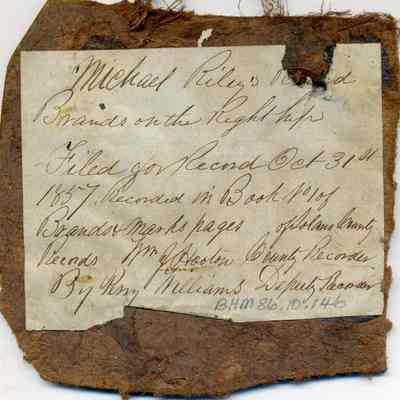 Michael Riley's
Brands on the Right hip
Filed for Record Oct 31st
1857. Recorded in Book No 1 of
Brands & marks pages , of Solano County
Records Wm J Hooten County Recorder
By Williams Deputy Recorder
BHM 86.10.146